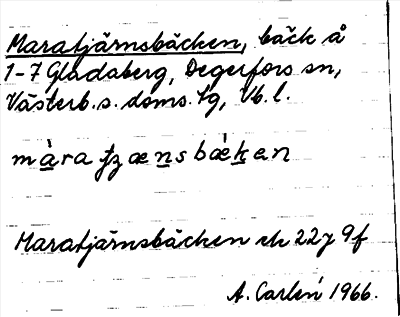 Maratjärnsbäcken, bäck å
1-7 Gladaberg, Degerfors sn,
Västerb. s. doms. tg, Vb. l.
màra tʒænsbækən
Maratjärnsbäcken ek 22J 9f
A. Carlén 1966.